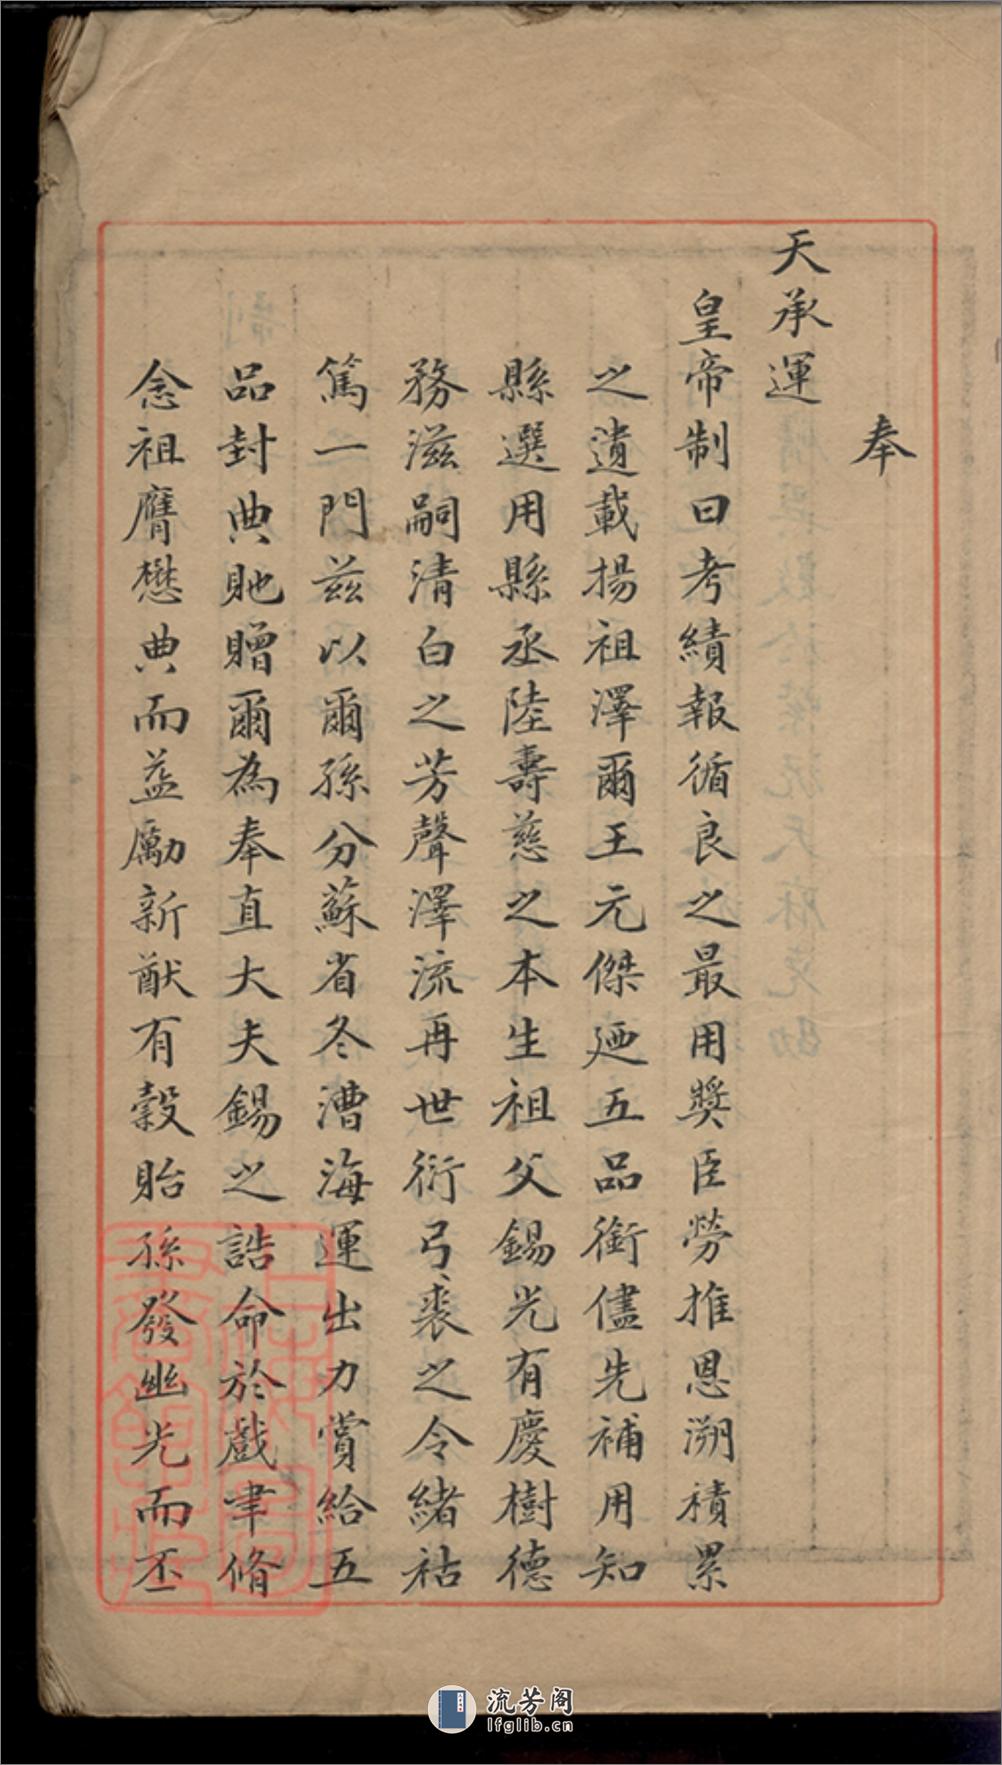 奉
天承運
皇帝制曰考績報循良之最用獎臣勞推恩溯積累
之遺載揚祖澤爾王元傑廼五品銜儘先補用知
縣選用縣丞陸壽慈之本生祖父錫光有慶樹德
務滋嗣清白之芳聲澤流再世衍弓裘之令緒祜
篤一門茲以爾孫分蘇省冬漕海運出力賞給五
品封典貤贈爾為奉直大夫錫之誥命於戲聿脩
念祖膺懋典而益勵新猷有穀貽孫發幽光而丕
上海圖書館藏
流芳阁
lfglib.cn